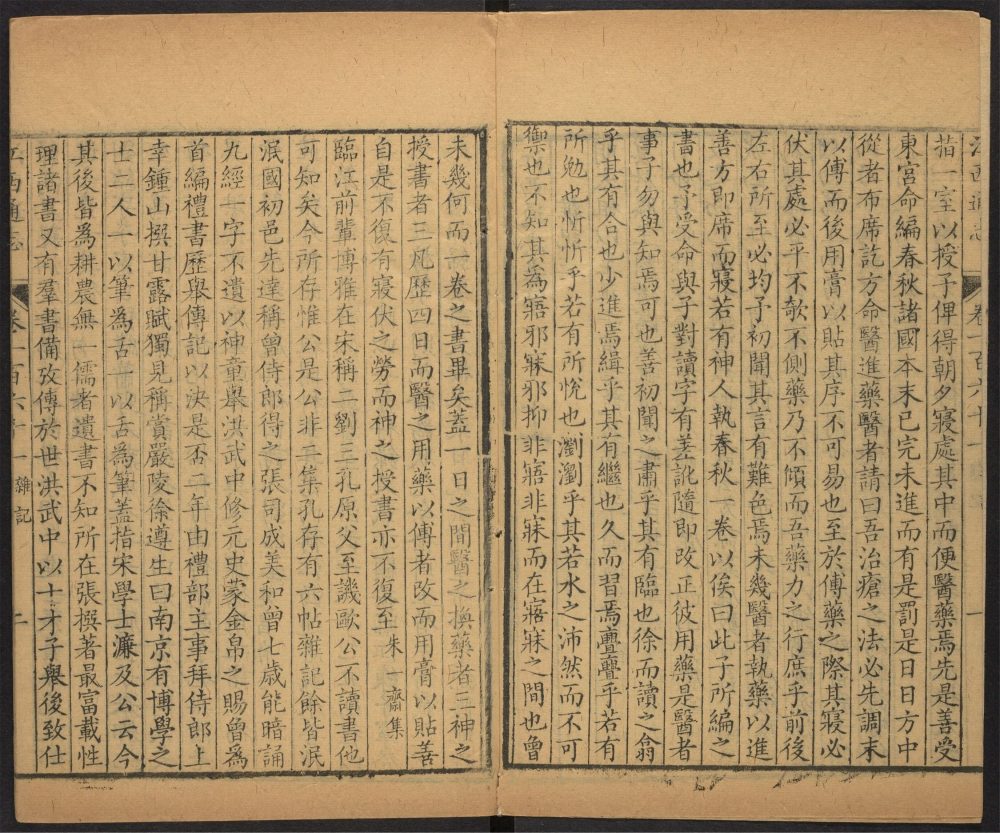 江西通志
卷一百六十一
一
葅一室以授子俾得朝夕寢處其中而便醫藥焉先是善受
東宮命編春秋諸國本末已完未進而有是罰是日日方中
從者布席訖方命醫進藥醫者請曰吾治瘡之法必先調末
以傅而後用膏以貼其序不可易也至於傅藥之際其寢必
伏其處必平不欹不側藥乃不傾而吾藥力之行庶乎前後
左右所至必均予初聞其言有難色焉未幾醫者執藥以進
善方即席而寢若有神人執春秋一卷以俟曰此子所編之
書也予受命與子對讀字有差訛隨即改正彼用藥是醫者
事子勿與知焉可也善初聞之肅乎其有臨也徐而讀之翕
乎其有合也少進焉緝乎其有繼也久而習焉亹亹乎若有
所勉也忻忻乎若有所悅也瀏瀏乎其若水之沛然而不可
禦也不知其為寤邪寐邪抑非寤非寐而在寤寐之間也曾
未幾何而一卷之書畢矣蓋一日之間醫之換藥者三神之
授書者三凡歷四日而醫之用藥以傅者改而用膏以貼善
自是不復有寢伏之勞而神之授書亦不復至 朱一齋集
臨江前輩博雅在宋稱二劉三孔原父至譏歐公不讀書他
可知矣今所存惟公是公非二集孔存有六帖雜記餘皆泯
泯國初邑先達稱曾侍郎得之張司成美和曾七歲能暗誦
九經一字不遺以神童舉洪武中修元史蒙金帛之賜曾為
首編禮書歷舉傳記以決是否二年由禮部主事拜侍郎上
幸鍾山撰甘露賦獨見稱賞嚴陵徐遵生曰南京有博學之
士二人一以筆為舌一以舌為筆蓋指宋學士濂及公云今
其後皆為耕農無一儒者遺書不知所在張撰著最富載性
理諸書又有羣書備攷傳於世洪武中以十才子舉後致仕
江西通志
卷一百六十一 雜記
二